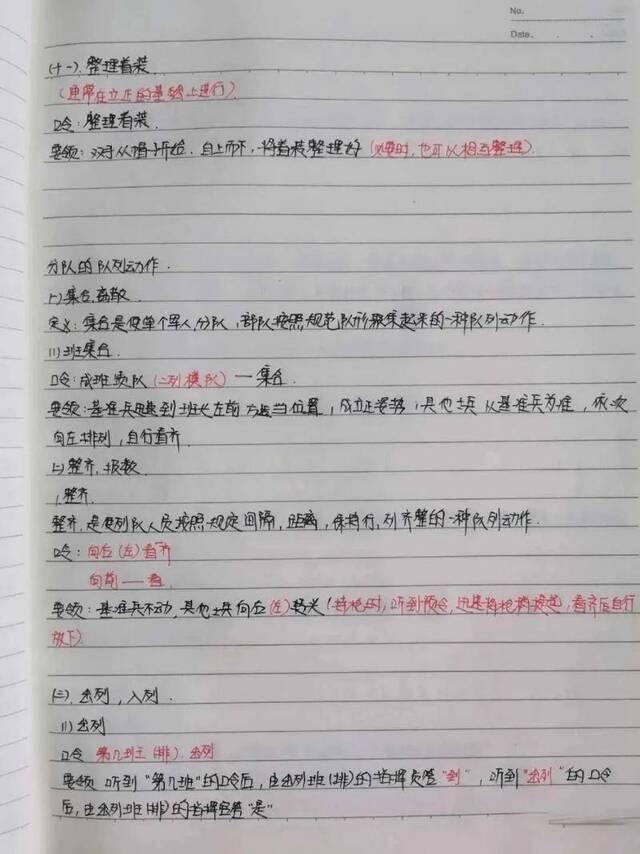 No.
Date.
(十一).整理着装
(通常在立正的基础上进行)
口令:整理着装.
要领:双手从帽子开始.自上而下,将着装整理好(必要时,也可以相互整理)
分队的队列动作.
(一)集合,离散
定义:集合是使单个军人,分队,部队按照规范队形聚集起来的一种队列动作.
(1)班集合.
口令:成班横队(二列横队)一集合.
要领:基准兵迅速到班长左前方适当位置,成立正姿势,其他士兵从基准兵为准,依次
向左排列,自行看齐
(二)整齐.报数
1,整齐.
整齐.是使列队人员按照规定间隔,距离,保持行,列齐整的一种队列动作.
口令:向右(左)看齐
向前——看.
要领:基准兵不动,其他士兵向右(左)转头(持枪时,听到预令,迅速将枪稍提起,看齐后自行
放下)
(三).出列,入列.
(1)出列
口令 第几班(排).出列
要领 听到"第几班"的口令后,由出列班(排)的指挥员答"到",听到"出列"的口令
后,由出列班(排)的指挥员答"是"